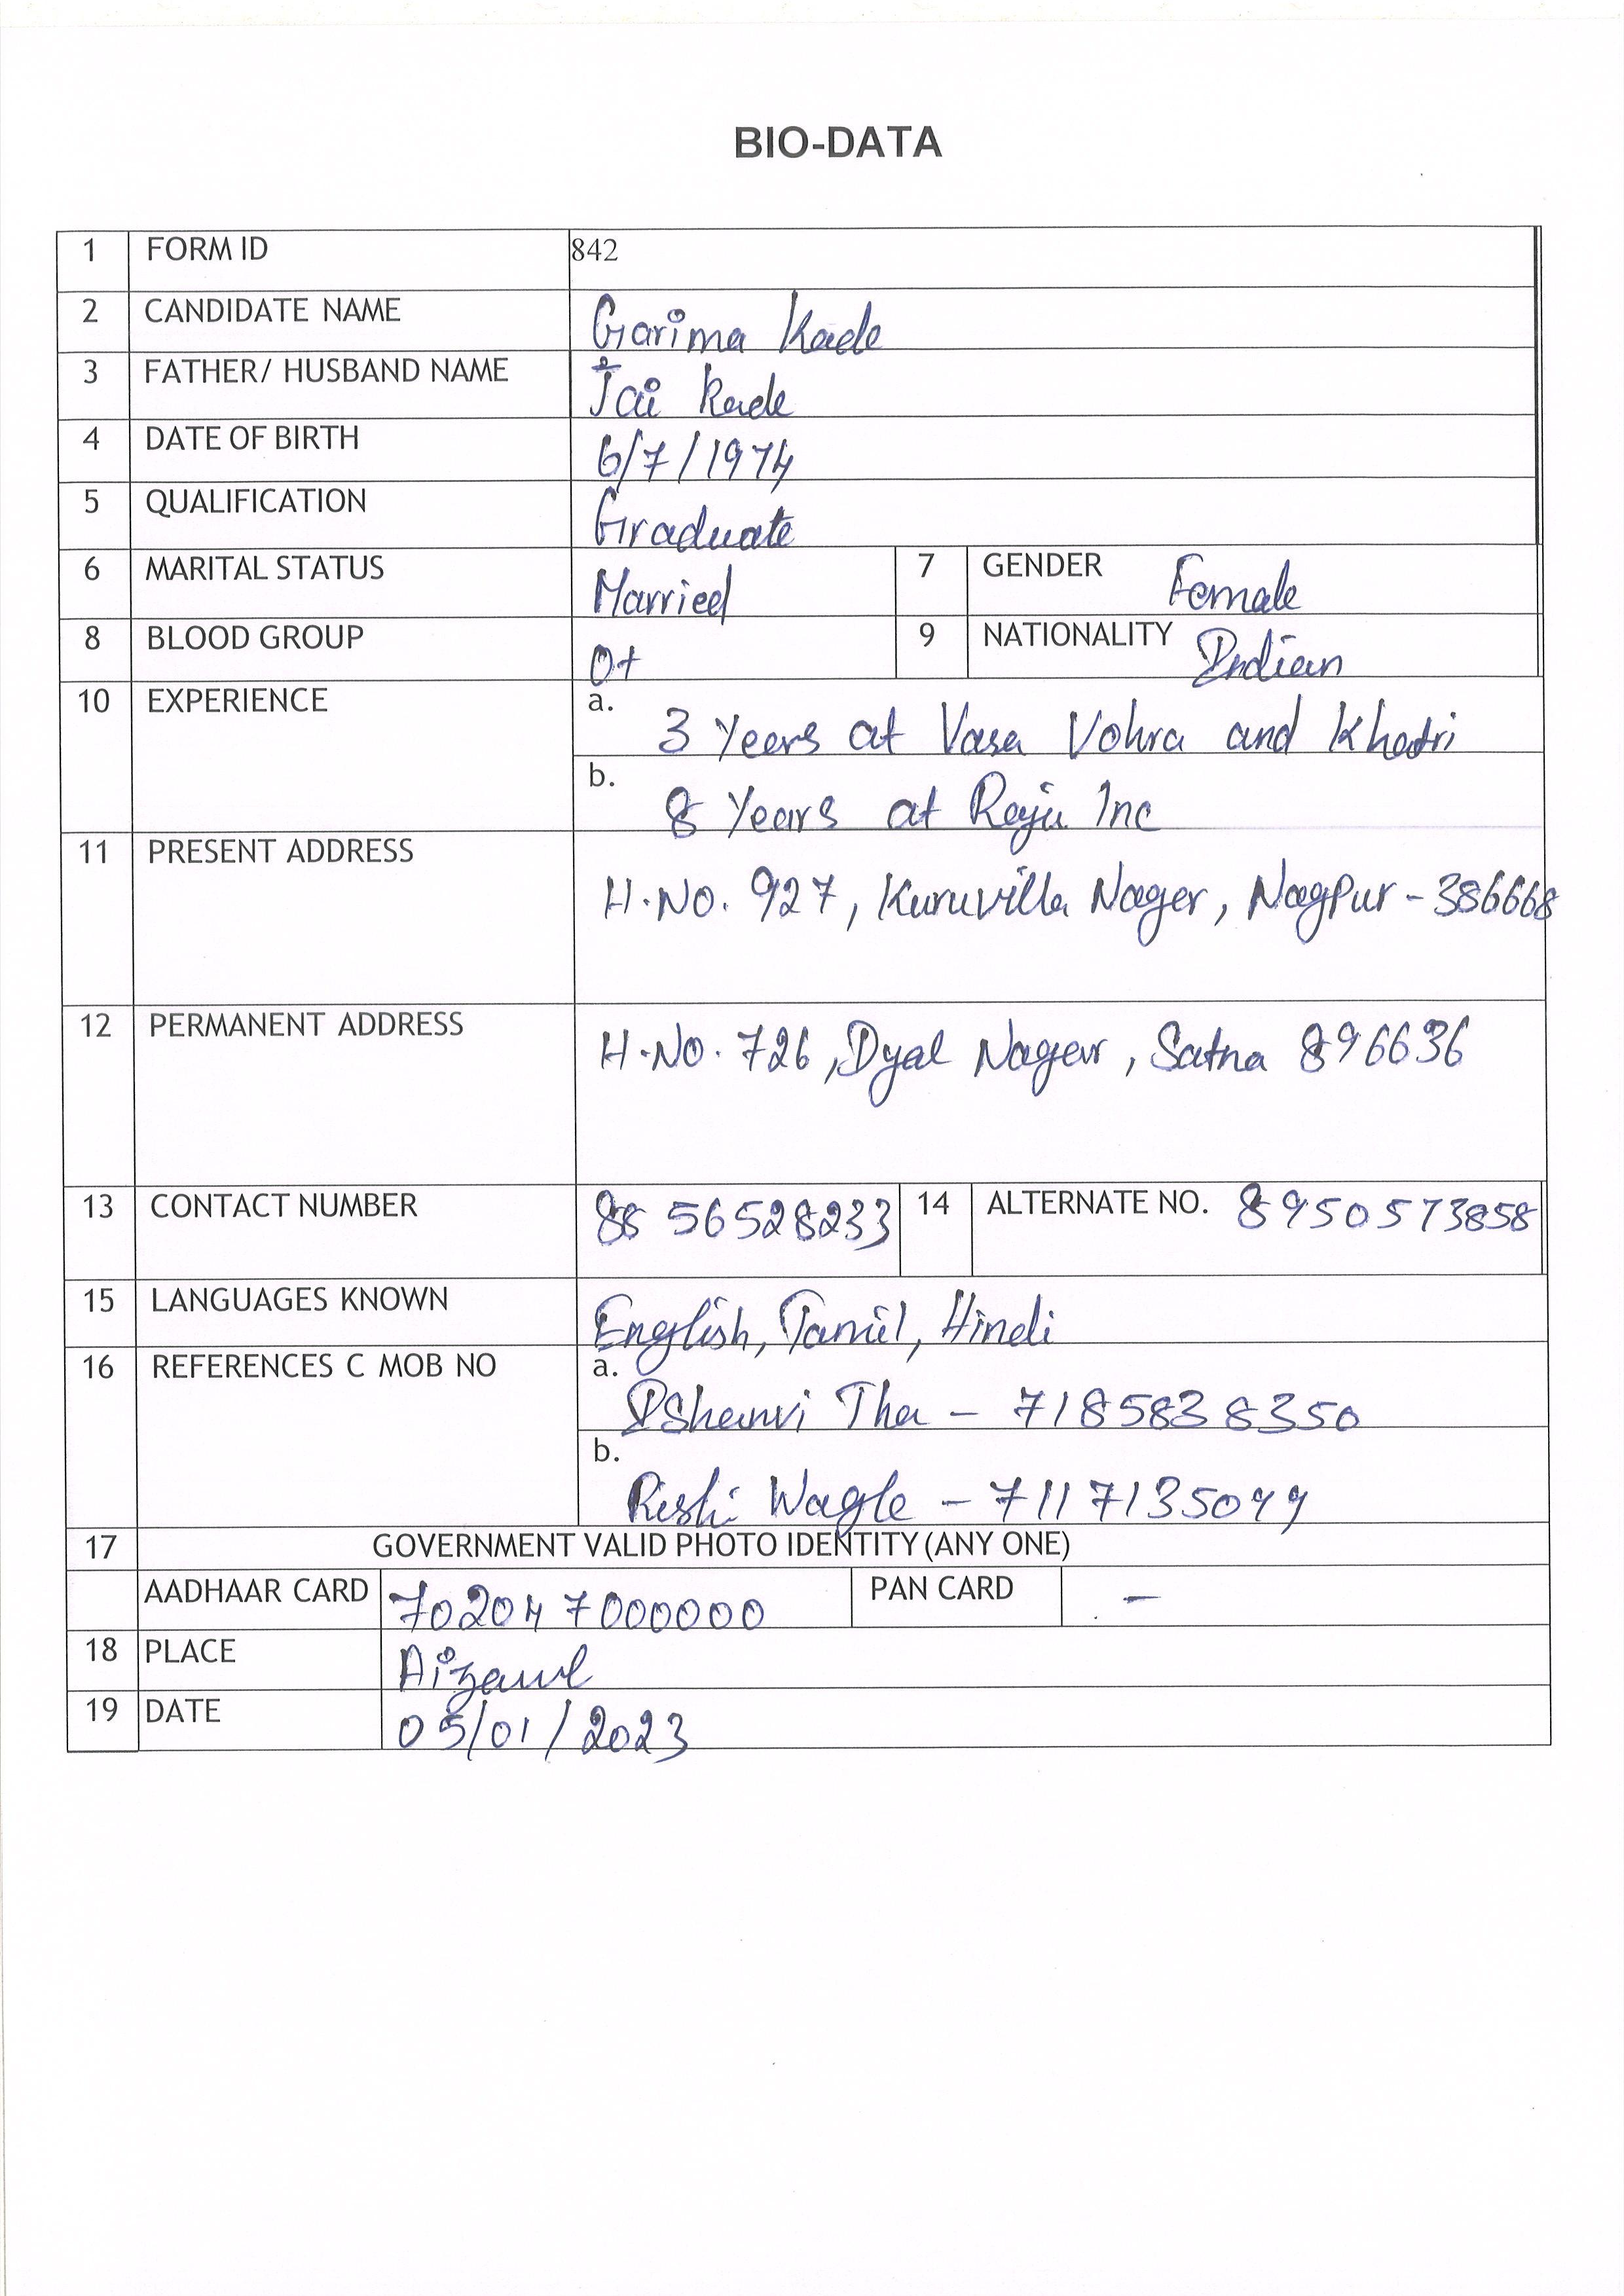 BIO-DATA
1 FORM ID 842
2 CANDIDATE NAME Garima Kade
3 FATHER/ HUSBAND NAME Jai Kade
4 DATE OF BIRTH 6/7/1974
5 QUALIFICATION Graduate
6 MARITAL STATUS Married 7 GENDER Female
8 BLOOD GROUP O+ 9 NATIONALITY Indian
10 EXPERIENCE a. 3 Years at Vasa Vohra and Khatri
b. 8 Years at Raju Inc
11 PRESENT ADDRESS H.No. 927, Kuruvilla Nagar, Nagpur - 386668
12 PERMANENT ADDRESS H.No. 726, Dyal Nagar, Satna 896636
13 CONTACT NUMBER 88 56528233 14 ALTERNATE NO. 8950573858
15 LANGUAGES KNOWN English, Tamil, Hindi
16 REFERENCES C MOB NO a. Ishanvi Jha - 7185838350
b. Rishi Wagle - 7117135099
17 GOVERNMENT VALID PHOTO IDENTITY (ANY ONE)
AADHAAR CARD 702047000000 PAN CARD -
18 PLACE Aizawl
19 DATE 05/01/2023